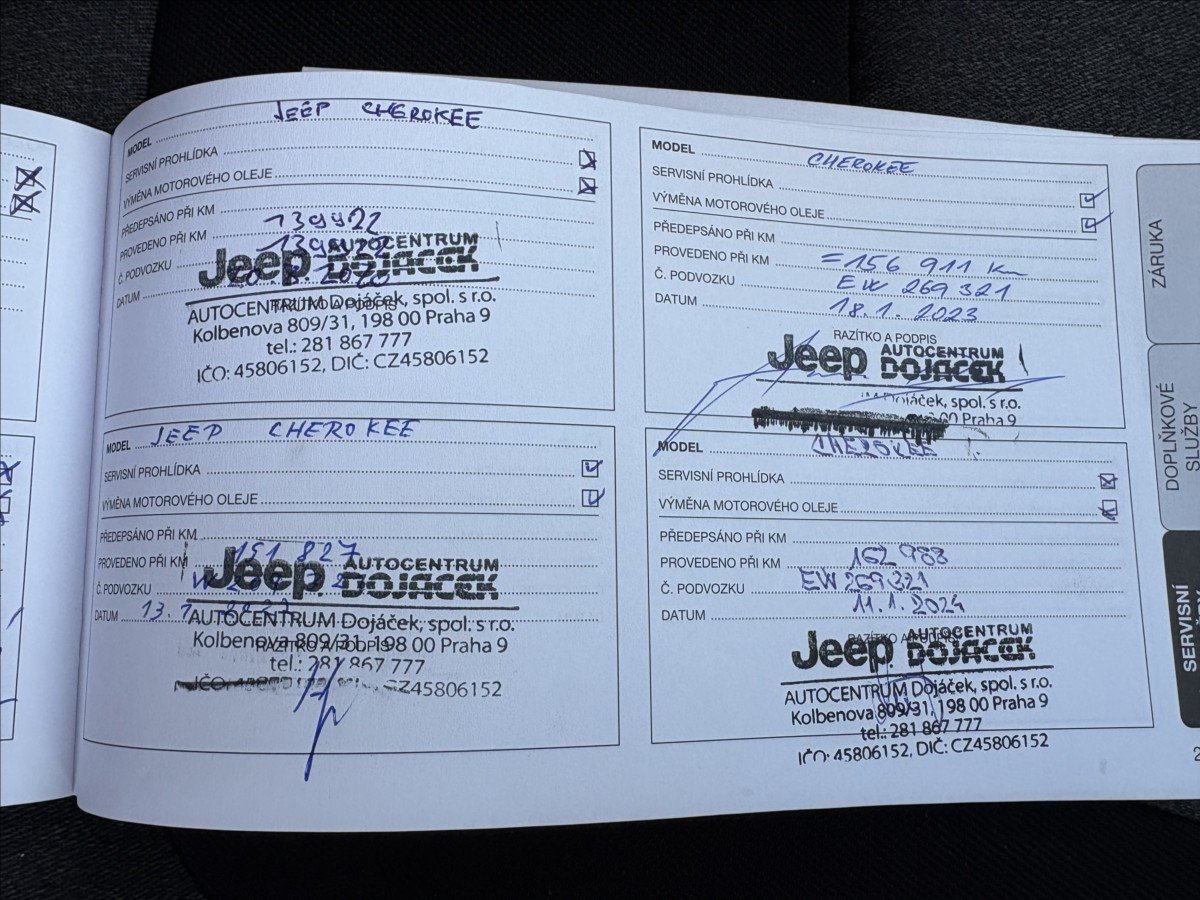 JEEP CHEROKEE
MODEL
SERVISNÍ PROHLÍDKA
VÝMĚNA MOTOROVÉHO OLEJE
PŘEDEPSÁNO PŘI KM
139922
PROVEDENO PŘI KM
Č. PODVOZKU
DATUM 2020
Jeep AUTOCENTRUM DOJÁČEK
RAZÍTKO A PODPIS
AUTOCENTRUM Dojáček, spol. s r.o.
Kolbenova 809/31, 198 00 Praha 9
tel.: 281 867 777
IČO: 45806152, DIČ: CZ45806152
MODEL JEEP CHEROKEE
SERVISNÍ PROHLÍDKA
VÝMĚNA MOTOROVÉHO OLEJE
PŘEDEPSÁNO PŘI KM
PROVEDENO PŘI KM 151 827
Č. PODVOZKU
DATUM 13.
Jeep AUTOCENTRUM DOJÁČEK
AUTOCENTRUM Dojáček, spol. s r.o.
Kolbenova 809/31, 198 00 Praha 9
RAZÍTKO A PODPIS
tel.: 281 867 777
IČO: CZ45806152
MODEL CHEROKEE
SERVISNÍ PROHLÍDKA
VÝMĚNA MOTOROVÉHO OLEJE
PŘEDEPSÁNO PŘI KM
PROVEDENO PŘI KM =156 911 km
Č. PODVOZKU EW 269 321
DATUM 18.1.2023
RAZÍTKO A PODPIS
Jeep AUTOCENTRUM DOJÁČEK
Dojáček, spol. s r.o.
00 Praha 9
MODEL CHEROKEE
SERVISNÍ PROHLÍDKA
VÝMĚNA MOTOROVÉHO OLEJE
PŘEDEPSÁNO PŘI KM
PROVEDENO PŘI KM 162 988
Č. PODVOZKU EW 269321
DATUM 11.1.2024
RAZÍTKO A PODPIS
Jeep AUTOCENTRUM DOJÁČEK
AUTOCENTRUM Dojáček, spol. s r.o.
Kolbenova 809/31, 198 00 Praha 9
tel.: 281 867 777
IČO: 45806152, DIČ: CZ45806152
ZÁRUKA
DOPLŇKOVÉ
SLUŽBY
SERVISNÍ